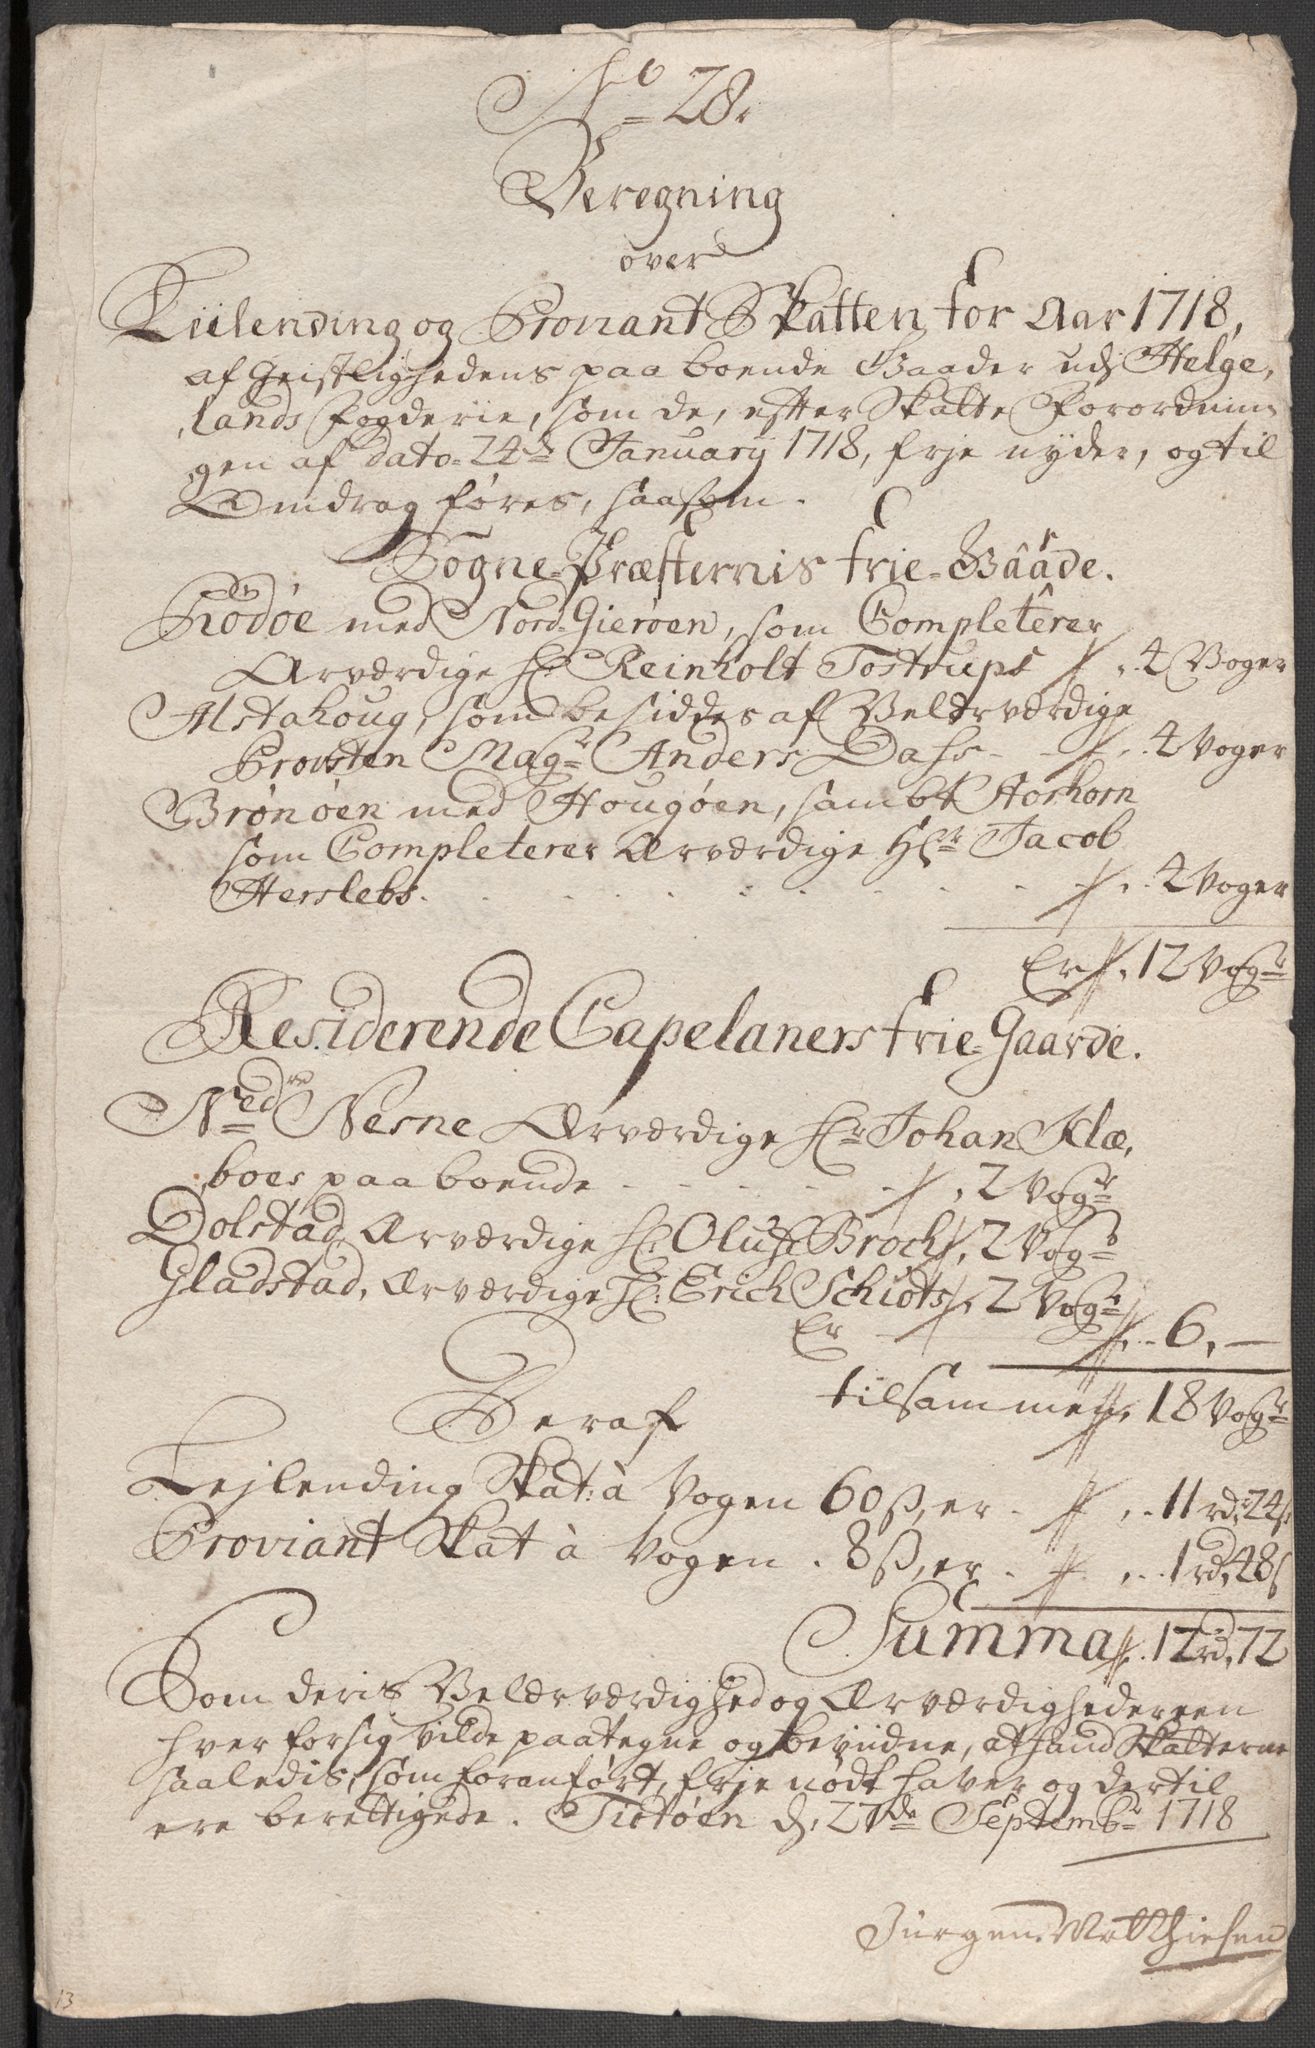 No 28.
Beregning
over
Leilending og Proviant Skatten for Aar 1718,
af Geistlighedens paaboende Gaader udj Helge,
lands fogderie, som de, efter Skatte forordnin
gen af dato 24de January 1718, frje nyder, og til
Omdrag føres, saasom.
Sogne-Præsternis frie-Gaarde.
Rødøe med Nord-Gierøen, som Completerer
Ærværdige Hr. Reinholt Tostrups 4 Voger
Alstahoug, som besiddes af Velærværdige
Provsten Magr Anders Dass 4 Voger
Brønøen med Hougøen, sambt Torhorn
som Completerer Ærværdige Hr Jacob
Herslebs. 4 Voger
Er 12 Vogr
Residerende Capelaners frie-Gaarde.
Nedre Nesne Ærværdige Hr Johan Klæ,
boes paaboende 2 Vogr
Dolstad, Ærværdige Hr: Oluf Broch, 2 Vogr
Gladstad, Ærværdige Hr: Erich Schiøts, 2 Vogr
Er 6,—
tilsammen 18 Vogr
Deraf
Lejlending Skat: à Vogen 60 ß, er 11 rdr 24 ß
Proviant Skat à Vogen 8 ß, er 1 rd, 48 ß
Summa 12 rdr, 72
Som deris Velærværdighed og Ærværdigheder een
hver for sig vilde paategne og beviidne, at hand Skatterne
saaledis, som foranført, frje nødt haver og dertil
ere berettigede. Tiøtøen d, 27de Septembr 1718
Jürgen Matthiesen
13